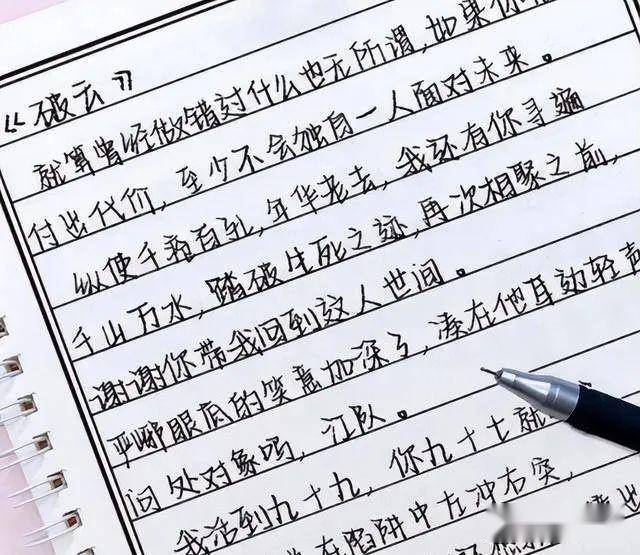 《破云》
就算曾经做错过什么也无所谓，如果你
付出代价，至少不会独自一人面对未来。
纵使千疮百孔，年华老去，我还有你寻遍
千山万水，踏破生死之迹，再次相聚之前，
谢谢你带我回到这人世间。
严哪眼底的笑意加深了，凑在他耳边轻声
问处对象吗，江队。
我活到九十九，你九十七就
在陷阱中左冲右突，